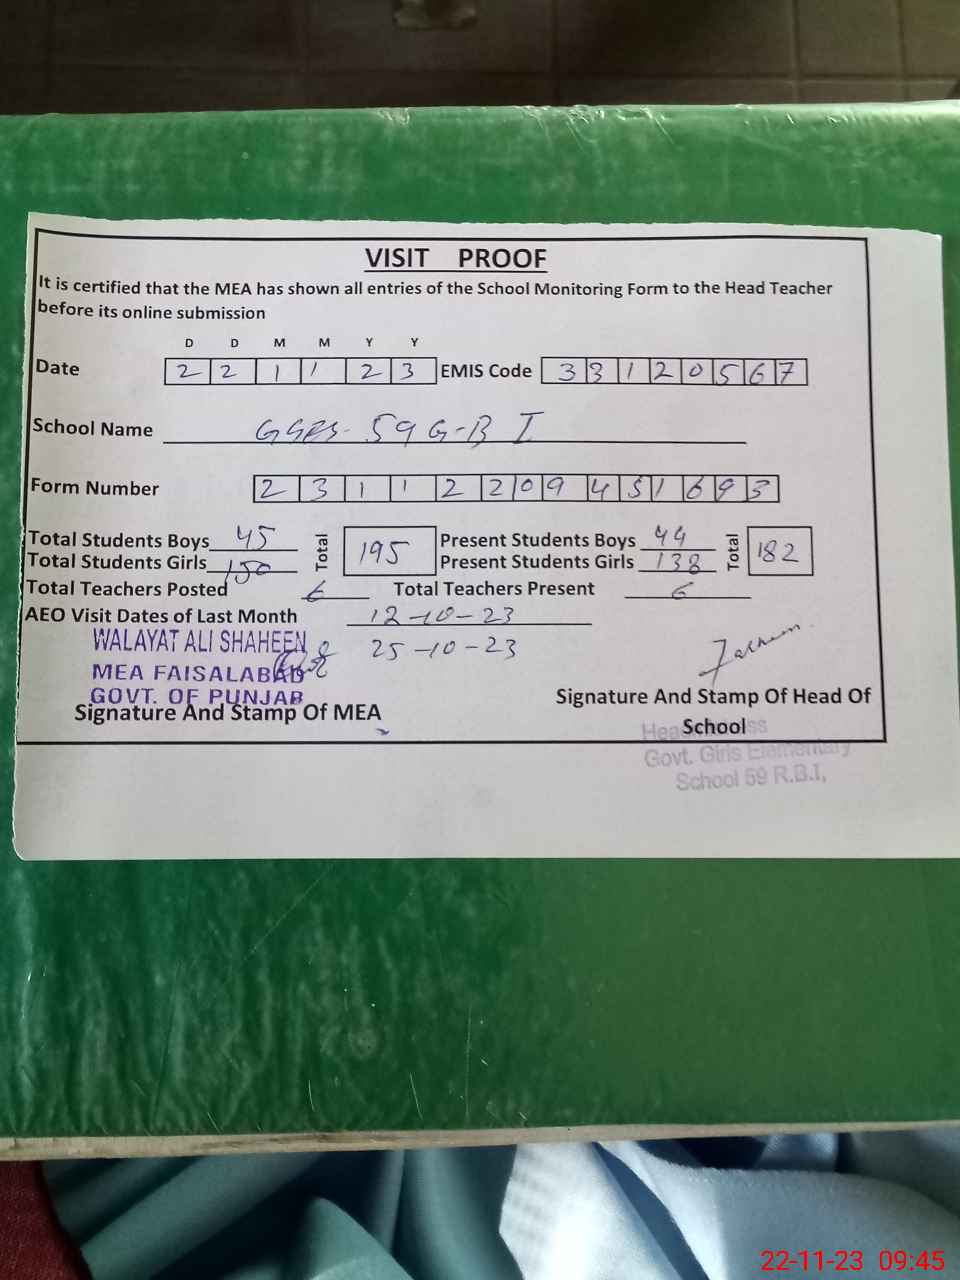 VISIT PROOF
It is certified that the MEA has shown all entries of the School Monitoring Form to the Head Teacher
before its online submission
D D M M Y Y
Date 2 2 1 1 2 3 EMIS Code 3 3 1 2 0 5 6 7
School Name 59 G-B I
Form Number 2 3 1 1 2 2 0 9 4 5 1 6 9 3
Total Students Boys 45 Total 195 Present Students Boys 44 Total 182
Total Students Girls 150 Present Students Girls 138
Total Teachers Posted 6 Total Teachers Present 6
AEO Visit Dates of Last Month 12-10-23
25-10-23
WALAYAT ALI SHAHEEN
MEA FAISALABAD
GOVT. OF PUNJAB
Signature And Stamp Of MEA
Signature And Stamp Of Head Of
School
Headmistress
Govt. Girls Elementary
School 59 R.B.I,
22-11-23 09:45